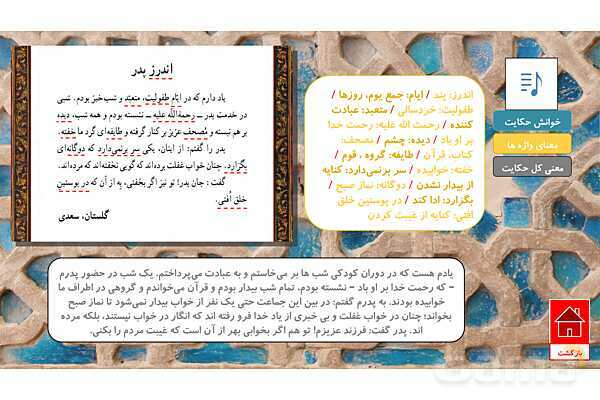 اندرز پدر
یاد دارم که در ایّام طفولیت، متعبّد و شب‌خیز بودم. شبی
در خدمت پدر ــ رحمةُ‌اللّه علیه ــ نشسته بودم و همه شب، دیده
بر هم نبسته و مُصحف عزیز بر کنار گرفته و طایفه‌ای گرد ما خفته.
پدر را گفتم: از اینان، یکی سر برنمی‌دارد که دوگانه‌ای
بگزارد. چنان خواب غفلت برده‌اند که گویی نخفته‌اند که مرده‌اند.
گفت: جان پدر! تو نیز اگر بخفتی، به از آن که در پوستین
خلق اُفتی.
گلستان، سعدی
اندرز: پند / ایام: جمع یوم، روزها /
طفولیت: خردسالی / متعبد: عبادت
کننده / رحمت الله علیه: رحمت خدا
بر او باد / دیده: چشم / مصحف:
کتاب، قرآن / طایفه: گروه ، قوم /
خفته: خوابیده / سر برنمی‌دارد: کنایه
از بیدار نشدن / دوگانه: نماز صبح /
بگزارد: ادا کند / در پوستین خلق
افتی: کنایه از غیبت کردن
خوانش حکایت
معنای واژه ها
معنی کل حکایت
یادم هست که در دوران کودکی شب ها بر می‌خاستم و به عبادت می‌پرداختم. یک شب در حضور پدرم
– که رحمت خدا بر او باد – نشسته بودم، تمام شب بیدار بودم و قرآن می‌خواندم و گروهی در اطراف ما
خوابیده بودند. به پدرم گفتم: در بین این جماعت حتی یک نفر از خواب بیدار نمی‌شود تا نماز صبح
بخواند؛ چنان در خواب غفلت و بی خبری از یاد خدا فرو رفته اند که انگار در خواب نیستند، بلکه مرده
اند. پدر گفت: فرزند عزیزم! تو هم اگر بخوابی بهر از آن است که غیبت مردم را بکنی.
بازگشت